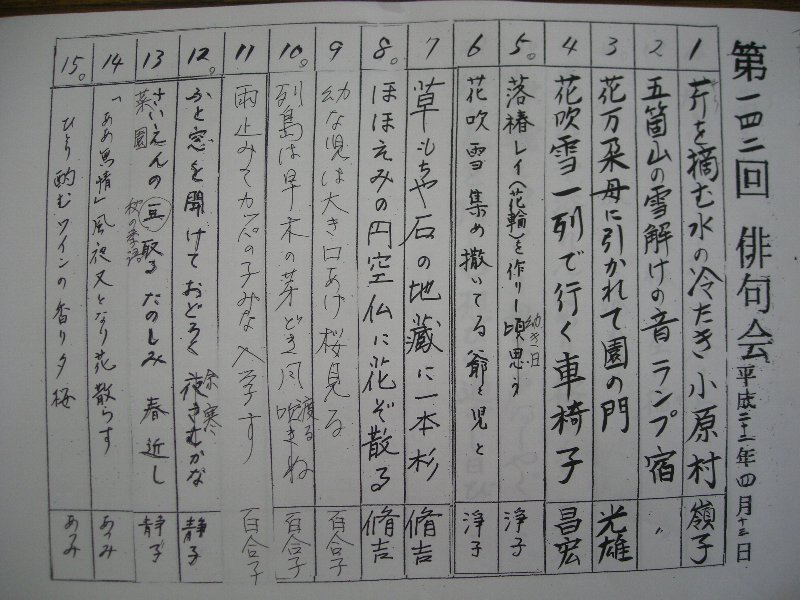 第一四二回 俳句会 平成二十二年四月十三日
1 芹を摘む水の冷たき小原村 嶺子
2 五箇山の雪解けの音ランプ宿 〃
3 花万朶母に引かれて園の門 光雄
4 花吹雪一列で行く車椅子 昌宏
5。 落椿レイ(花輪)を作りし頃思う 浄子
幼き日
6 花吹雪集め撒いてる爺と児と 浄子
7 草もちや石の地蔵に一本杉 脩吉
8。 ほほえみの円空仏に花ぞ散る 脩吉
9 幼な児は大き口あげ桜見る 百合子
10。 列島は早木の芽どき風吹きぬ 百合子
渡る
11 雨止みてカッパの子みな入学す 百合子
12。 ふと窓を開けておどろく夜さむかな 静子
余寒
13 さいえんの豆取るたのしみ春近し 静子
菜園
秋の季語
14 「ああ無情」風夜叉となり花散らす あみ
15。 ひとり酌むワインの香り夕桜 あみ